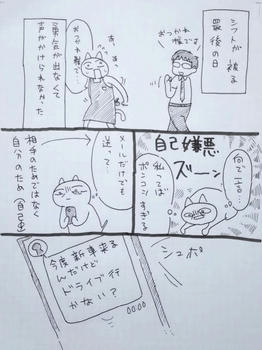 シフトが被る
最後の日
おつかれ様ですー
おつかれ様でーす
勇気が出なくて
声がかけられなかった
自己嫌悪
ズーン
何で一言…
私ってば
ポンコツすぎる
メールだけでも
送って…
相手のためではなく
自分のため(自己中)
シュポ
今度新車来る
んだけど
ドライブ行
かない?
00:00